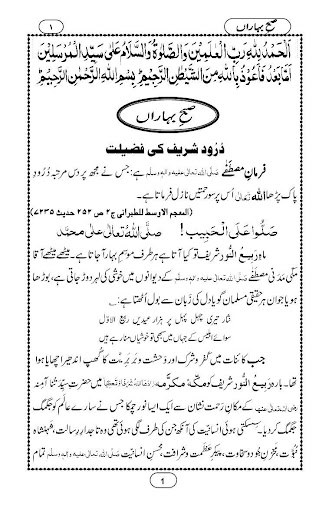 ۱
صبحِ بہاراں
اَلْحَمْدُ لِلّٰهِ رَبِّ الْعٰلَمِيْنَ وَالصَّلٰوةُ وَالسَّلَامُ عَلٰى سَيِّدِ الْمُرْسَلِيْنَ
اَمَّا بَعْدُ فَاَعُوْذُ بِاللّٰهِ مِنَ الشَّيْطٰنِ الرَّجِيْمِ بِسْمِ اللّٰهِ الرَّحْمٰنِ الرَّحِيْمِ
صبحِ بہاراں
دُرُود شریف کی فضیلت
فرمانِ مصطفٰے صلَّی اللہ تعالٰی علیہ واٰلہٖ وسلَّم ہے: جس نے مجھ پر دس مرتبہ دُرُود
پاک پڑھا اللہ تعالٰی اُس پر سو رحمتیں نازل فرماتا ہے۔
(المعجم الاوسط للطبرانی ج۲ ص ۲۵۲ حدیث ۷۲۳۵)
صَلُّوْا عَلَى الْحَبِيْب! صلَّى اللهُ تعالٰى على محمَّد
ماہِ رَبِیعُ النُّور شریف تو کیا آتا ہے ہر طرف موسمِ بہار آجاتا ہے۔ میٹھے میٹھے آقا
مکّی مَدَنی مصطفٰے صلَّی اللہ تعالٰی علیہ واٰلہٖ وسلَّم کے دیوانوں میں خوشی کی لہر دوڑ جاتی ہے، بوڑھا
ہو یا جوان ہر حقیقی مسلمان گویا دل کی زبان سے بول اُٹھتا ہے:
نثار تیری چہل پہل پر ہزار عیدیں ربیعُ الاوّل
سوائے ابلیس کے جہاں میں سبھی تو خوشیاں منا رہے ہیں
جب کائنات میں کُفر و شرک اور وَحشت و بَربَریَّت کا گُھپ اندھیرا چھایا ہوا
تھا۔ بارہ رَبِیعُ النُّور شریف کو مکّۂ مکرَّمہ زادھا اللہ شرفا و تعظیما میں حضرتِ سیِّدَتُنا آمِنہ
رضی اللہ تعالٰی عنہا کے مکانِ رحمت نشان سے ایک ایسا نور چمکا جس نے سارے عالَم کو جگمگ
جگمگ کر دیا۔ سِسکتی ہوئی انسانیت کی آنکھ جن کی طرف لگی ہوئی تھی وہ تاجدارِ رسالت، شَہَنشاہِ
نُبُوَّت، مَخزنِ جود و سخاوت، پیکرِ عظمت و شرافت، محسنِ انسانیّت صلَّی اللہ تعالٰی علیہ واٰلہٖ وسلَّم تمام
1